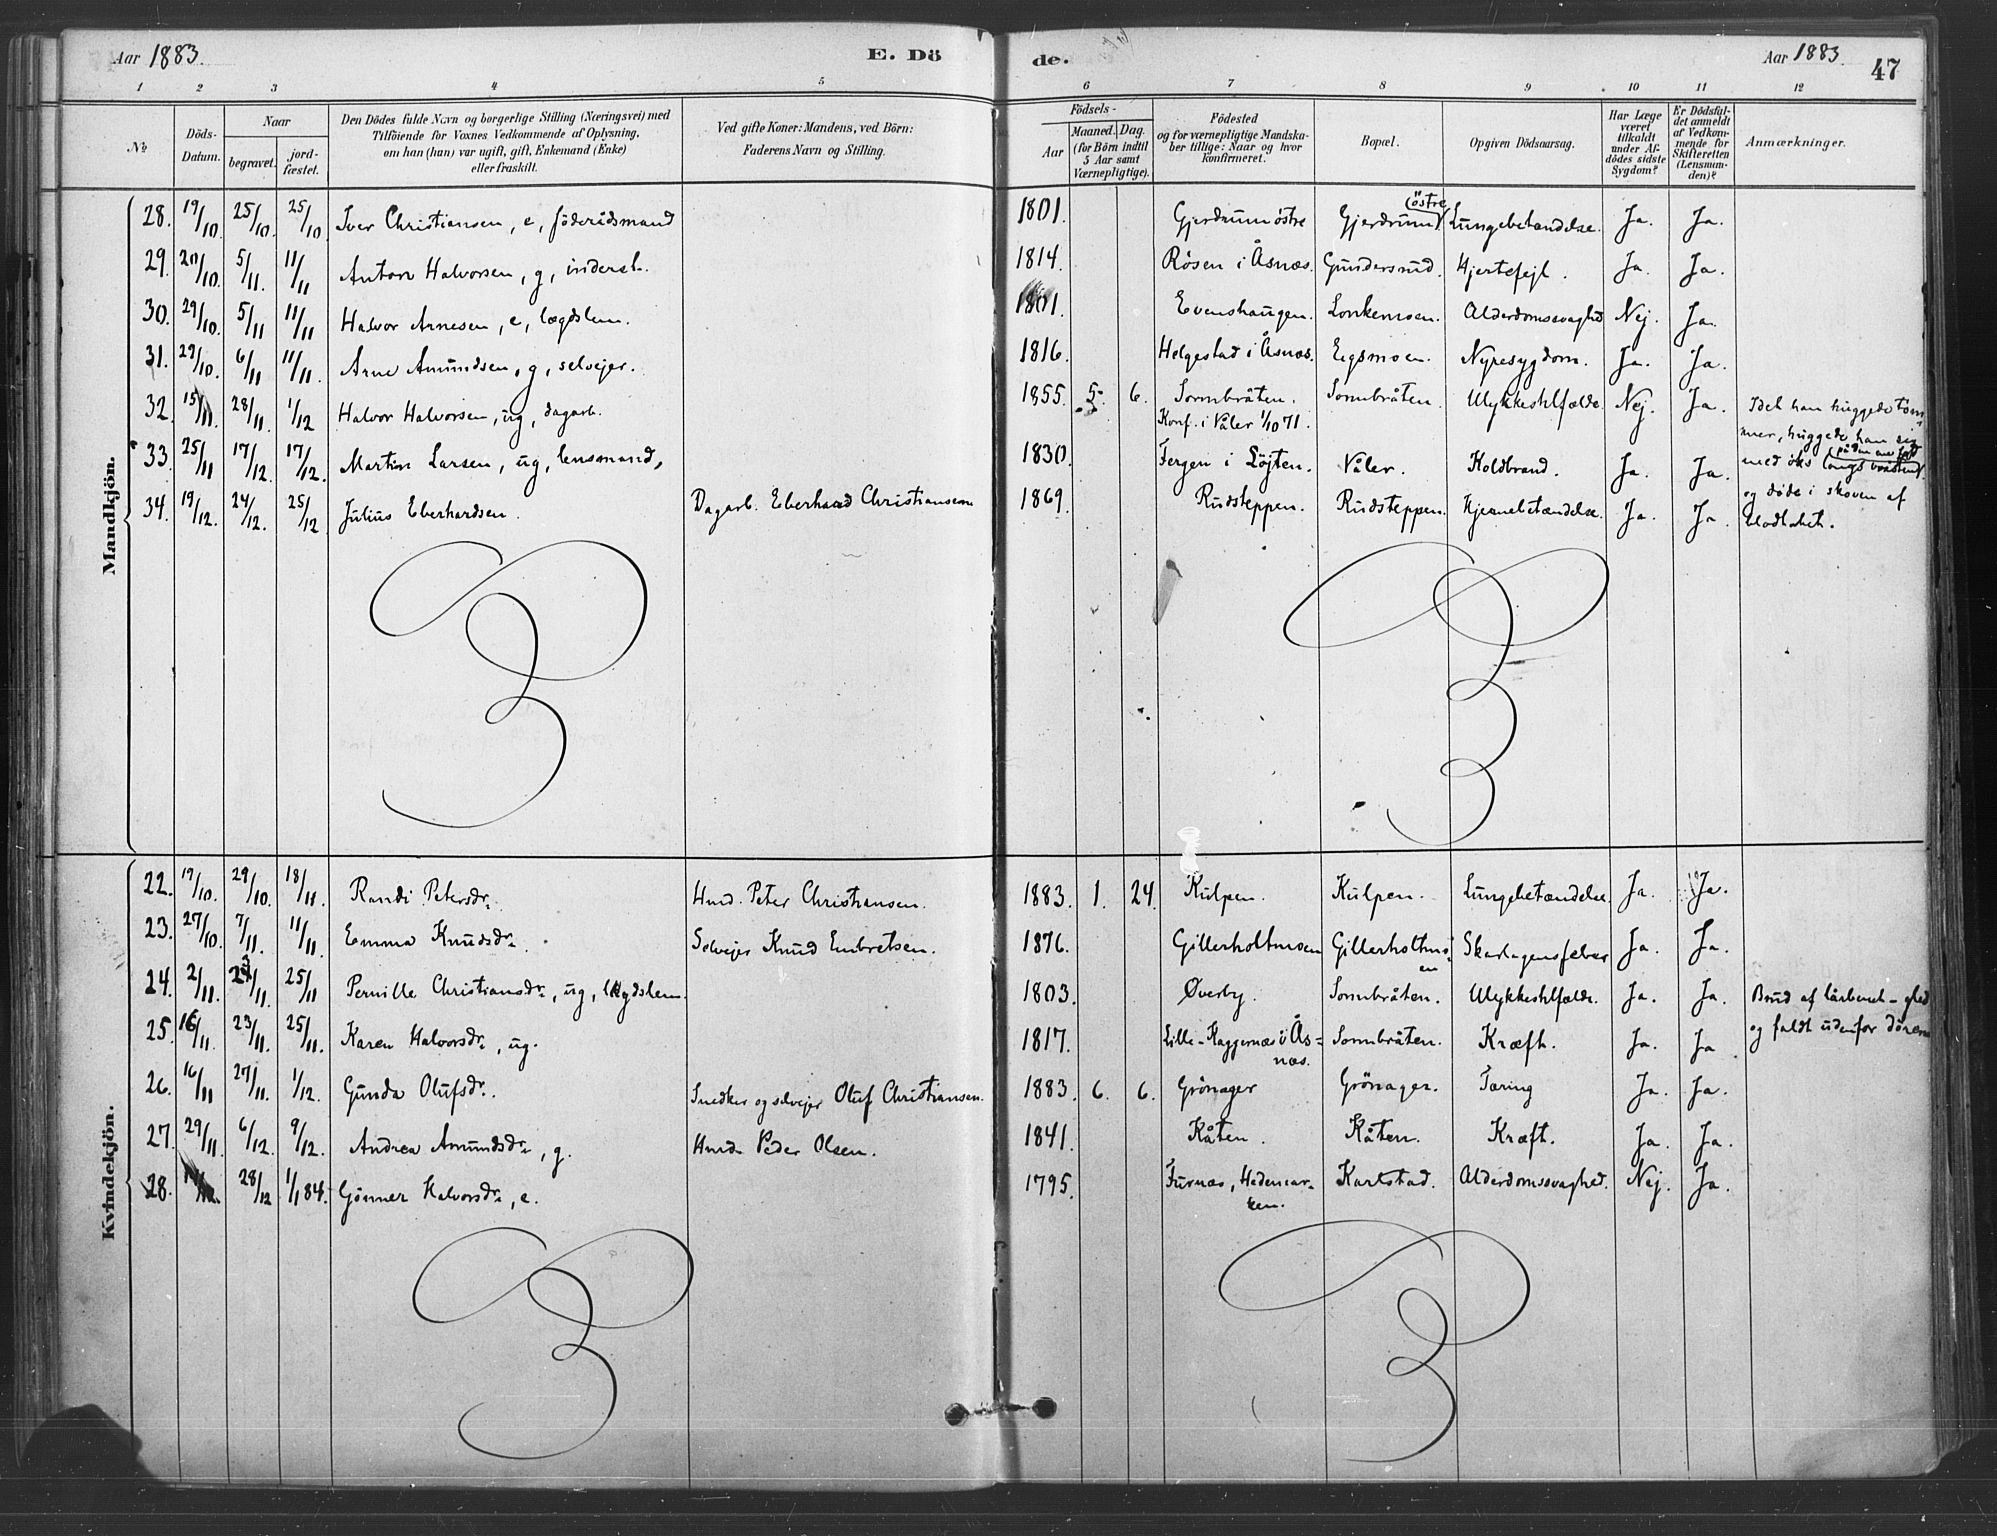 Aar 1883.
E. Dö
de.
Aar 1883.
47
1 2 3 4 5 6 7 8 9 10 11 12
No
Döds-Datum.
Naar
begravet.
jord-fæstet.
Den Dödes fulde Navn og borgerlige Stilling (Næringsvei) med
Tilföiende for Voxnes Vedkommende af Oplysning,
om han (hun) var ugift, gift, Enkemand (Enke)
eller fraskilt.
Ved gifte Koner: Mandens, ved Börn:
Faderens Navn og Stilling.
Födsels-
Aar
Maaned. Dag.
(for Börn indtil
5 Aar samt
Værnepligtige).
Födested
og for værnepligtige Mandska-
ber tillige: Naar og hvor
konfirmeret.
Bopæl.
Opgiven Dödsaarsag.
Har Læge
været
tilkaldt
under Af-
dödes sidste
Sygdom?
Er Dödsfal-
det anmeldt
af Vedkom-
mende for
Skifteretten
(Lensman-
den)?
Anmærkninger.
Mandkjön.
28. 19/10. 25/10. 25/10. Iver Christiansen, e, föderådsmand 1801. Gjerdrum östre Gjerdrum östre Lungebetændelse. Ja. Ja.
29. 20/10. 5/11. 11/11 Anton Halvorsen, g, inderst. 1814. Råsen i Åsnæs. Gundersrud. Hjertefejl. Ja. Ja.
30. 29/10. 5/11 11/11 Halvor Arnesen, e, lægdslem. 1801. Evenshaugen. Lonkemoen. Alderdomssvaghed Nej. Ja.
31. 29/10. 6/11 11/11. Arne Amundsen, g, selvejer. 1816. Helgestad i Åsnæs. Eigsmoen. Nyresygdom. Ja. Ja.
32. 15/11. 28/11. 1/12 Halvor Halvorsen, ug, dagarb. 1855. 5. 6. Sormbråten. Sormbråten. Ulykkestilfælde. Nej. Ja. Idet han huggede töm-
Konf. i Våler 1/10 71. mer, huggede han sig
33. 25/11 17/12. 17/12. Martin Larsen, ug, lensmand, 1830. Fergen i Löjten. Våler. Koldbrand. Ja. Ja. med öks
34. 19/12. 24/12. 25/12 Julius Eberhardsen. Dagarb. Eberhard Christiansen 1869. Rudsteppen. Rudsteppen. Hjernebetændelse. Ja. Ja. og döde i skoven af
blodtabet.
Kvindekjön.
22. 19/10. 29/10. 18/11. Randi Petersdr. Husmd. Peter Christiansen. 1883. 1. 24. Kulpen. Kulpen. Lungebetændelse. Ja. Ja.
23. 27/10. 7/11. 11/11. Emma Knudsdr. Selvejer Knud Embretsen. 1876. Gillerholtmoen Gillerholtmo-
en Skarlagensfeber Ja. Ja.
24. 2/11. 23/11. 25/11 Pernille Christiansdr., ug, lægdslem. 1803. Øverby. Sormbråten. Ulykkestilfælde. Ja. Ja. Brud af lårbenet - gled
25. 16/11. 23/11. 25/11. Karen Halvorsdr., ug. 1817. Lille-Kaggernæs i Ås-
næs. Sormbråten. Kræft. Ja. Ja og faldt udenfor dören
26. 16/11 27/11. 1/12. Gunda Olufsdr. Snedker og selvejer Oluf Christiansen. 1883. 6. 6. Grönager Grönager. Tæring Ja. Ja.
27. 29/11. 6/12. 9/12. Andrea Amundsdr., g. Husmd. Peder Olsen. 1841. Kåten. Kåten. Kræft. Ja. Ja.
28. 28/12 1/1 84. Gönner Halvorsdr., e. 1795. Furnæs, Hedemar-
ken. Karlstad. Alderdomssvaghed. Nej. Ja.